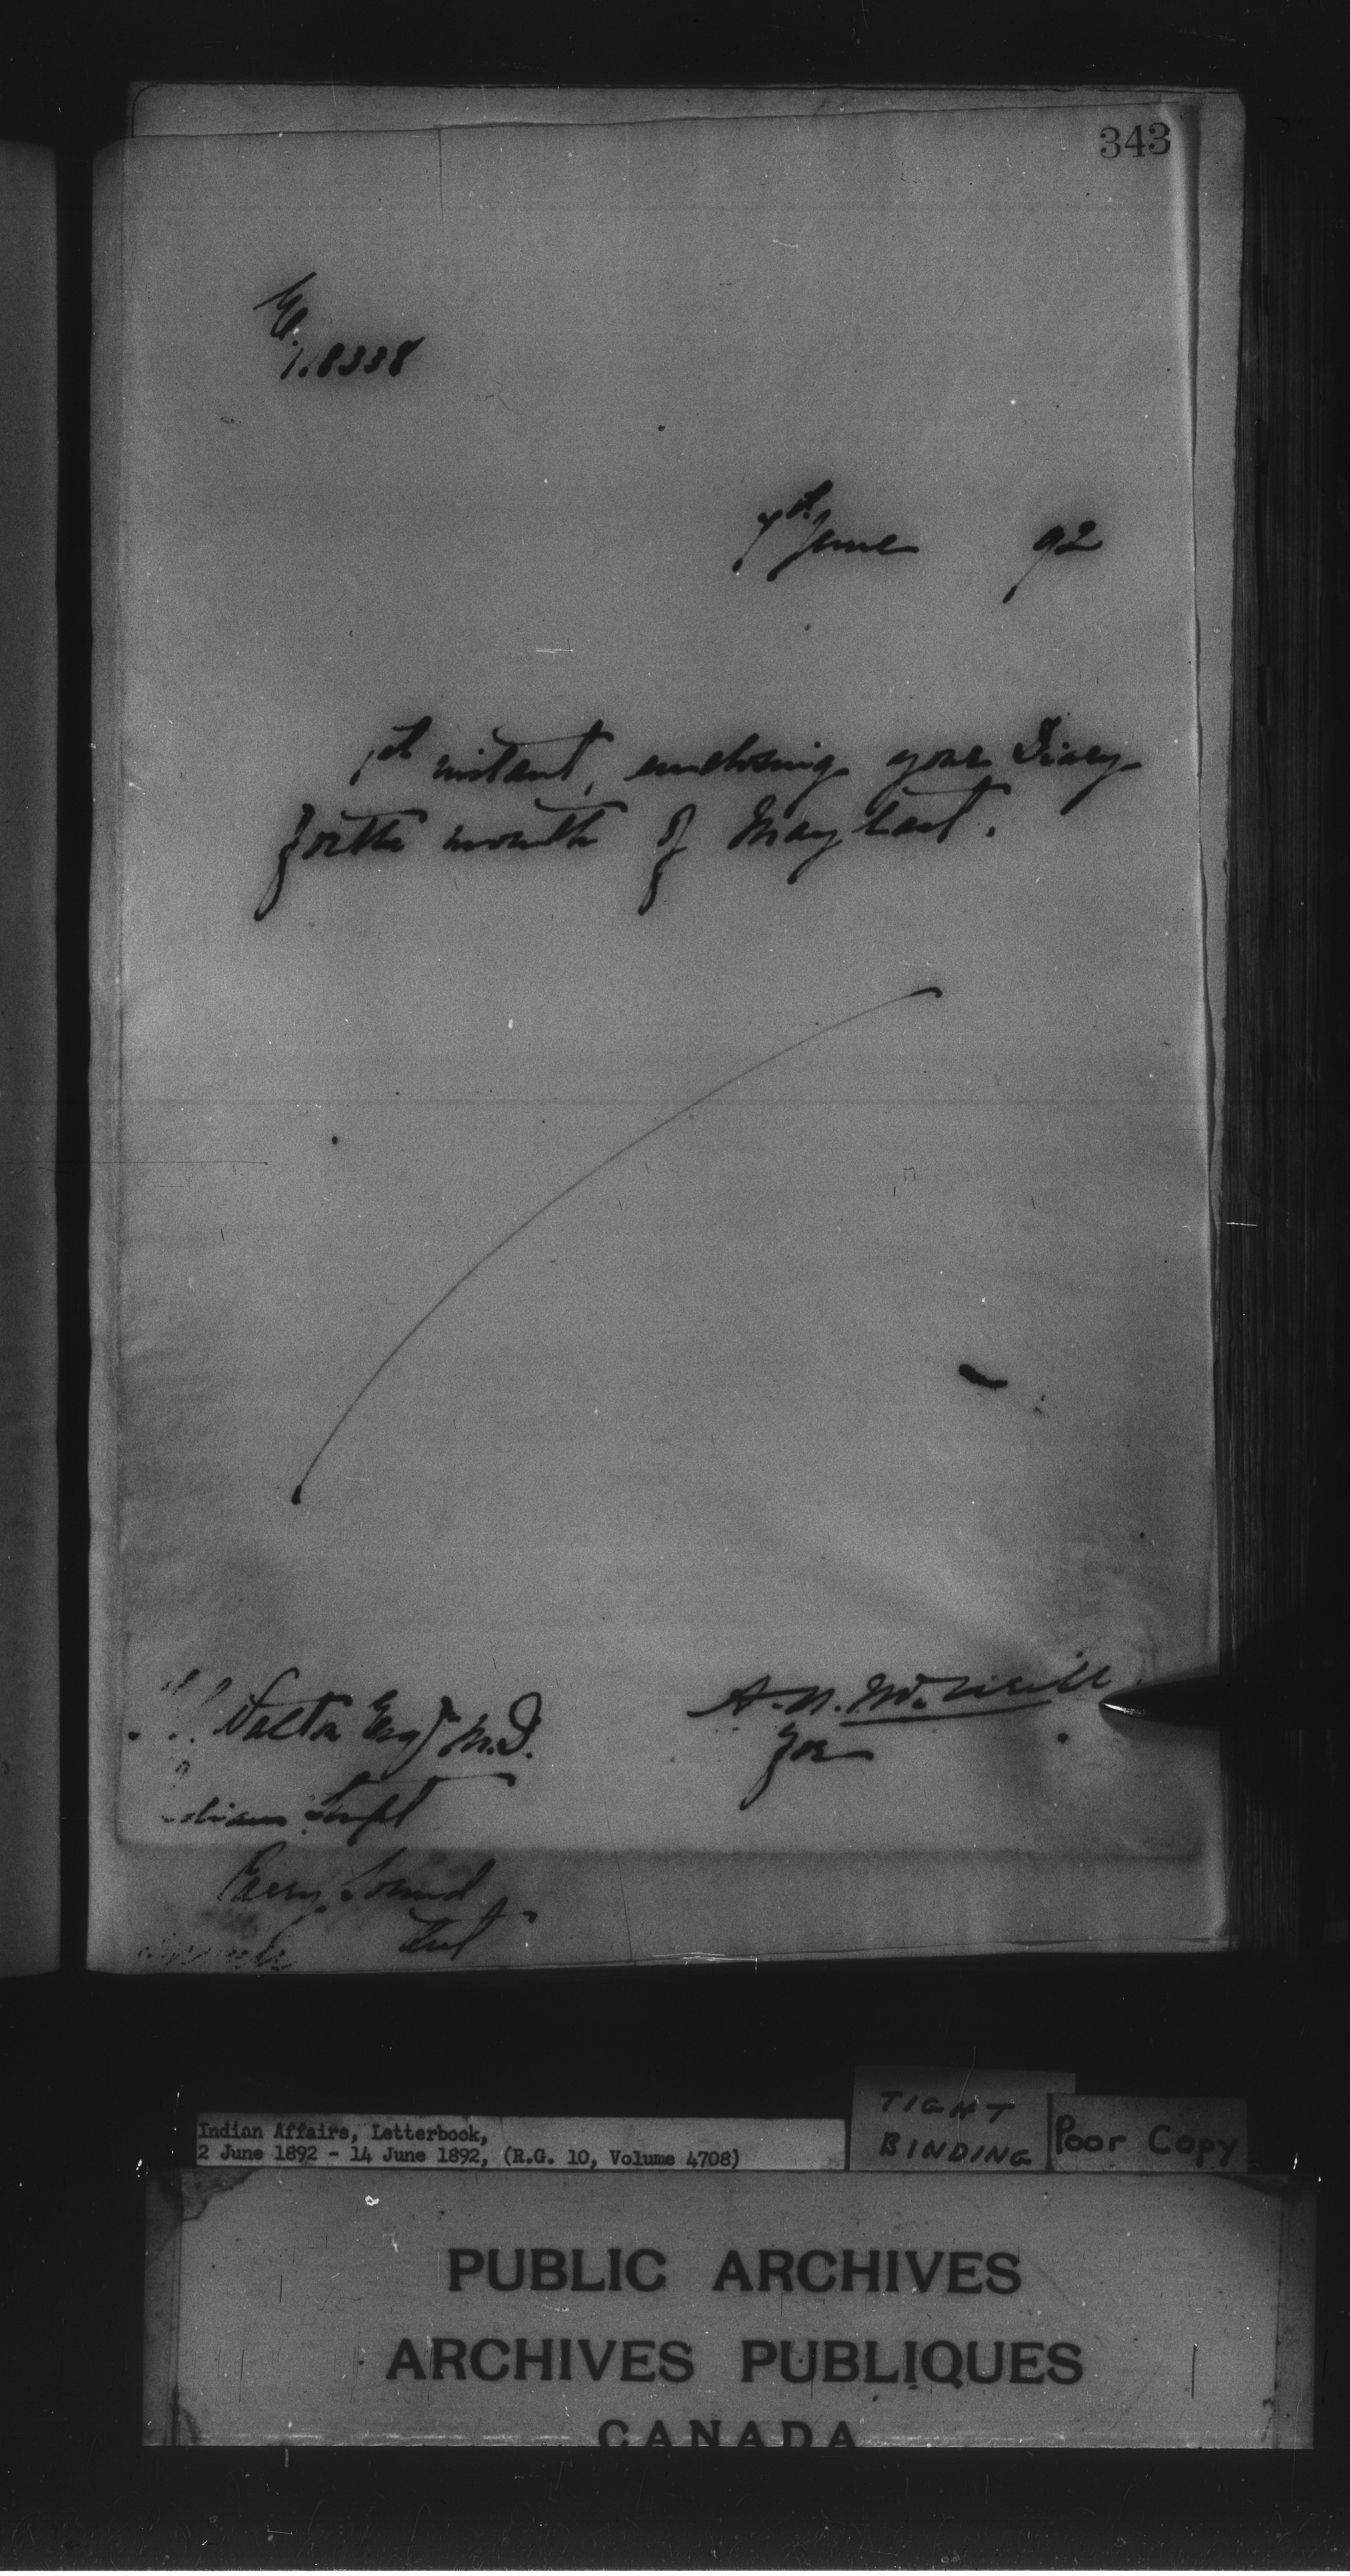 343
7th June 92
1st instant, enclosing your Diary
for the month of May last.
A. N. McNeill
for
Walton Esqr M.D.
Indian Supt
Parry Sound
Ont
Indian Affairs, Letterbook,
2 June 1892 - 14 June 1892, (R.G. 10, Volume 4708)
TIGHT
BINDING
Poor Copy
PUBLIC ARCHIVES
ARCHIVES PUBLIQUES
CANADA